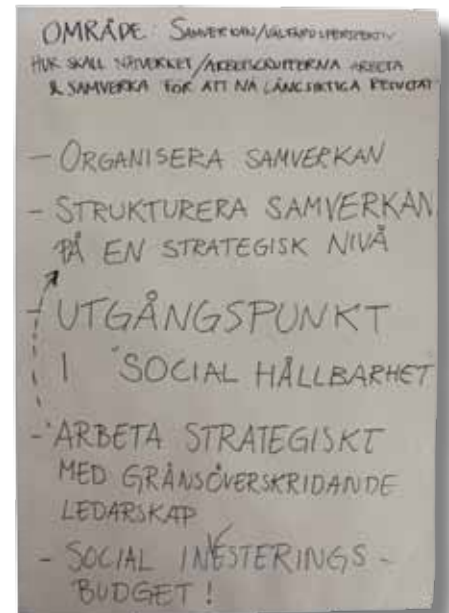 OMRÅDE: SAMVERKAN/VÄLFÄRDSPERSPEKTIV
HUR SKALL NÄTVERKET/ARBETSGRUPPERNA ARBETA
& SAMVERKA FÖR ATT NÅ LÅNGSIKTIGA RESULTAT
- ORGANISERA SAMVERKAN
- STRUKTURERA SAMVERKAN
PÅ EN STRATEGISK NIVÅ
- UTGÅNGSPUNKT
I SOCIAL HÅLLBARHET
- ARBETA STRATEGISKT
MED GRÄNSÖVERSKRIDANDE
LEDARSKAP
- SOCIAL INVESTERINGS-
BUDGET!